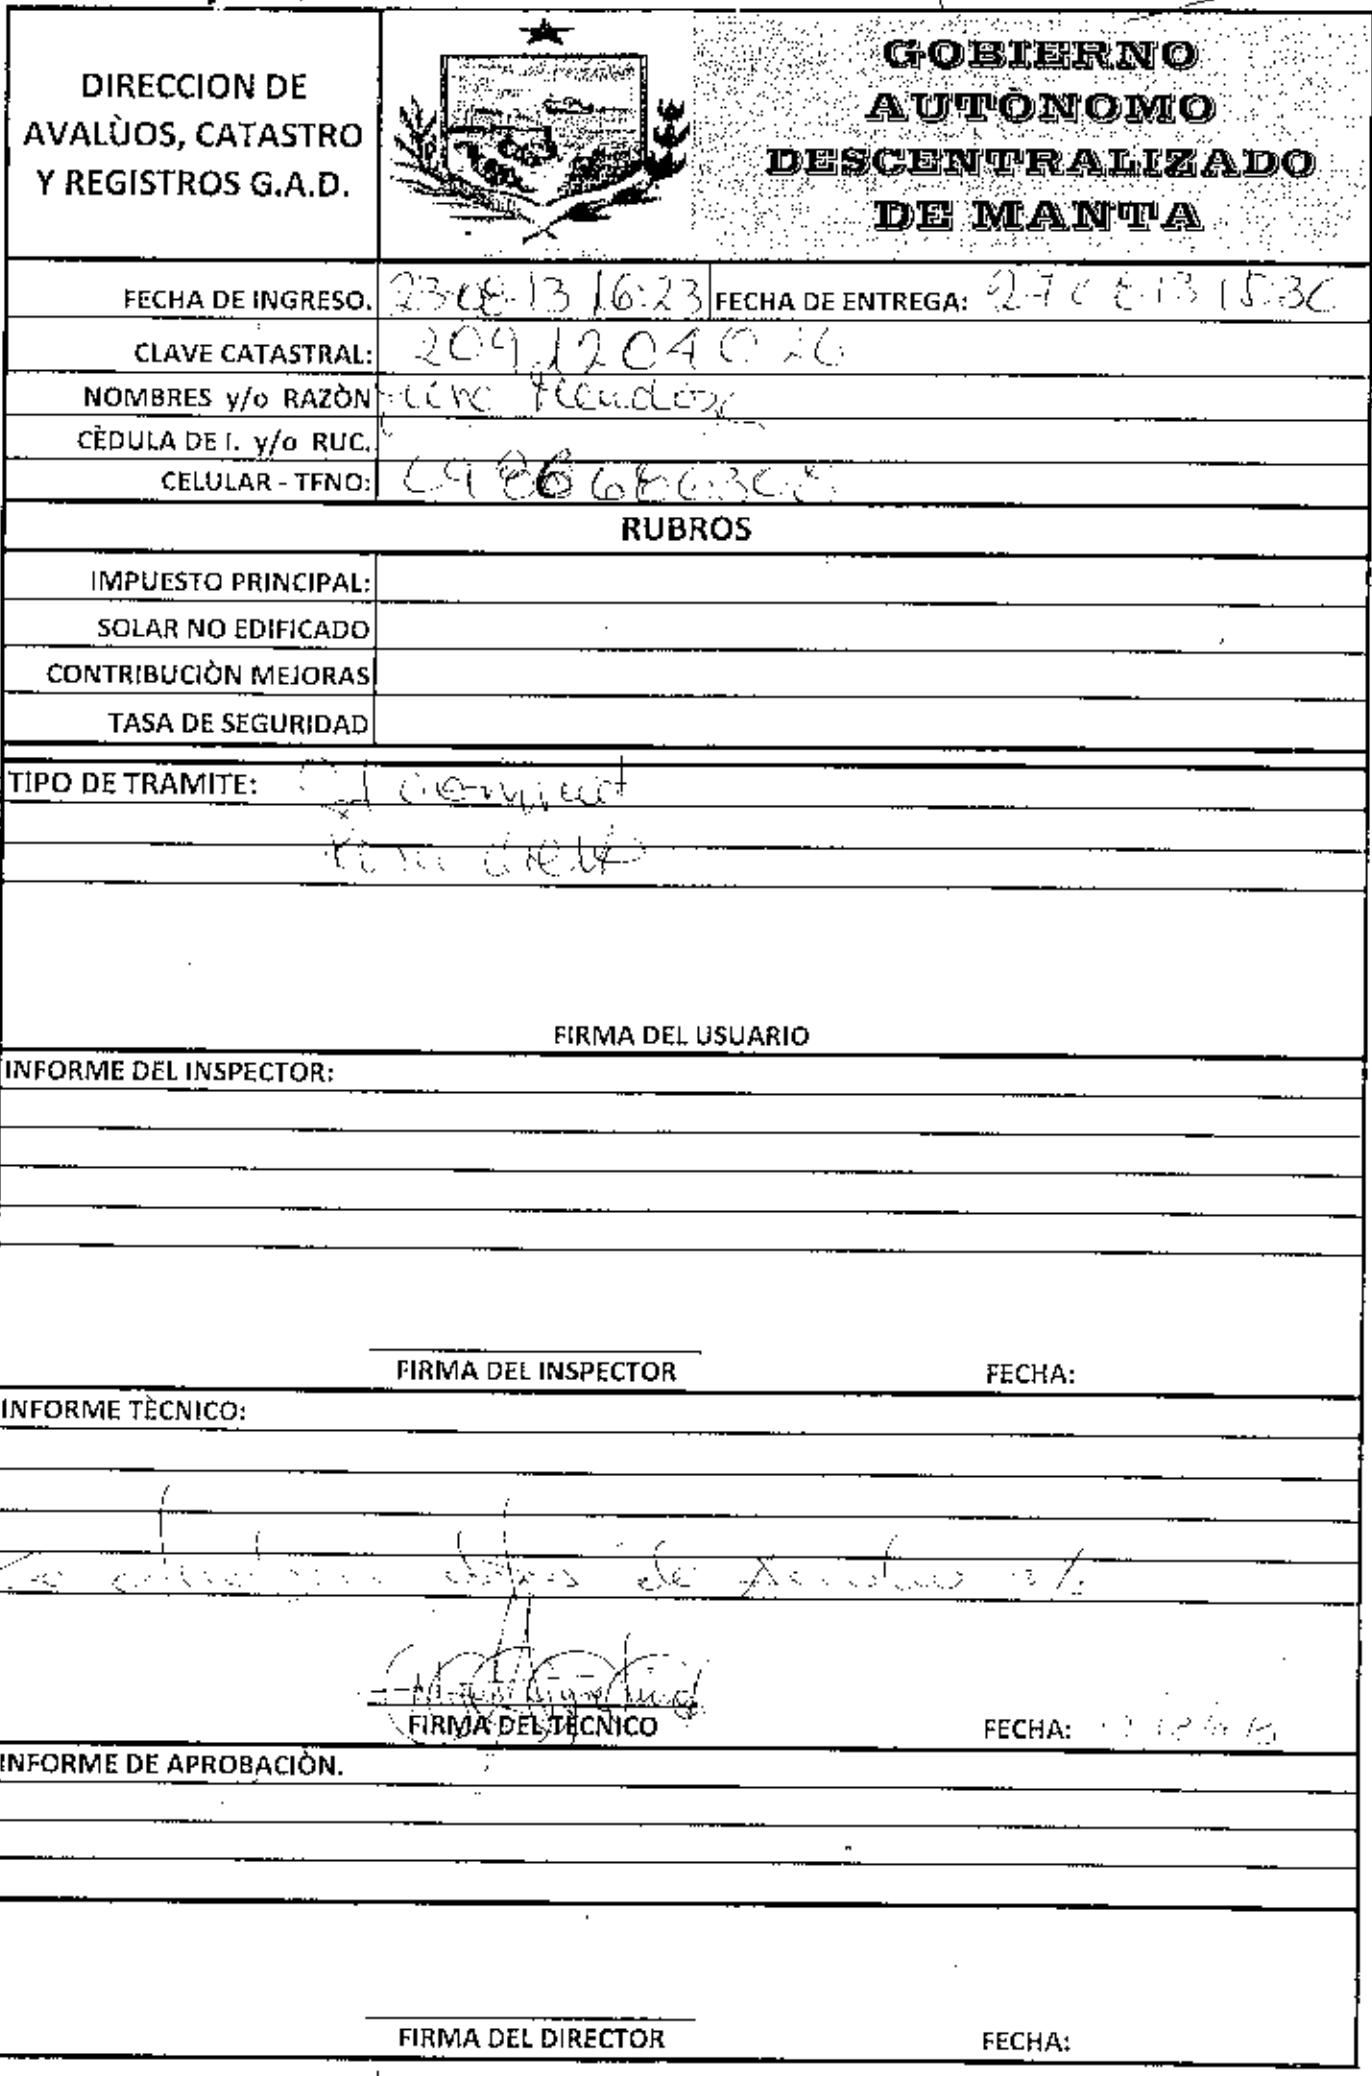 DIRECCION DE
AVALÙOS, CATASTRO
Y REGISTROS G.A.D.
GOBIERNO
AUTÒNOMO
DESCENTRALIZADO
DE MANTA
FECHA DE INGRESO. 23 08-13 16:23 FECHA DE ENTREGA: 27 08-13 15:30
CLAVE CATASTRAL: 209 1204 0
NOMBRES y/o RAZÒN
CÈDULA DE I. y/o RUC.
CELULAR - TFNO:
RUBROS
IMPUESTO PRINCIPAL:
SOLAR NO EDIFICADO
CONTRIBUCIÒN MEJORAS
TASA DE SEGURIDAD
TIPO DE TRAMITE:
FIRMA DEL USUARIO
INFORME DEL INSPECTOR:
FIRMA DEL INSPECTOR FECHA:
INFORME TÈCNICO:
de
FIRMA DEL TECNICO FECHA:
INFORME DE APROBACIÒN.
FIRMA DEL DIRECTOR FECHA: